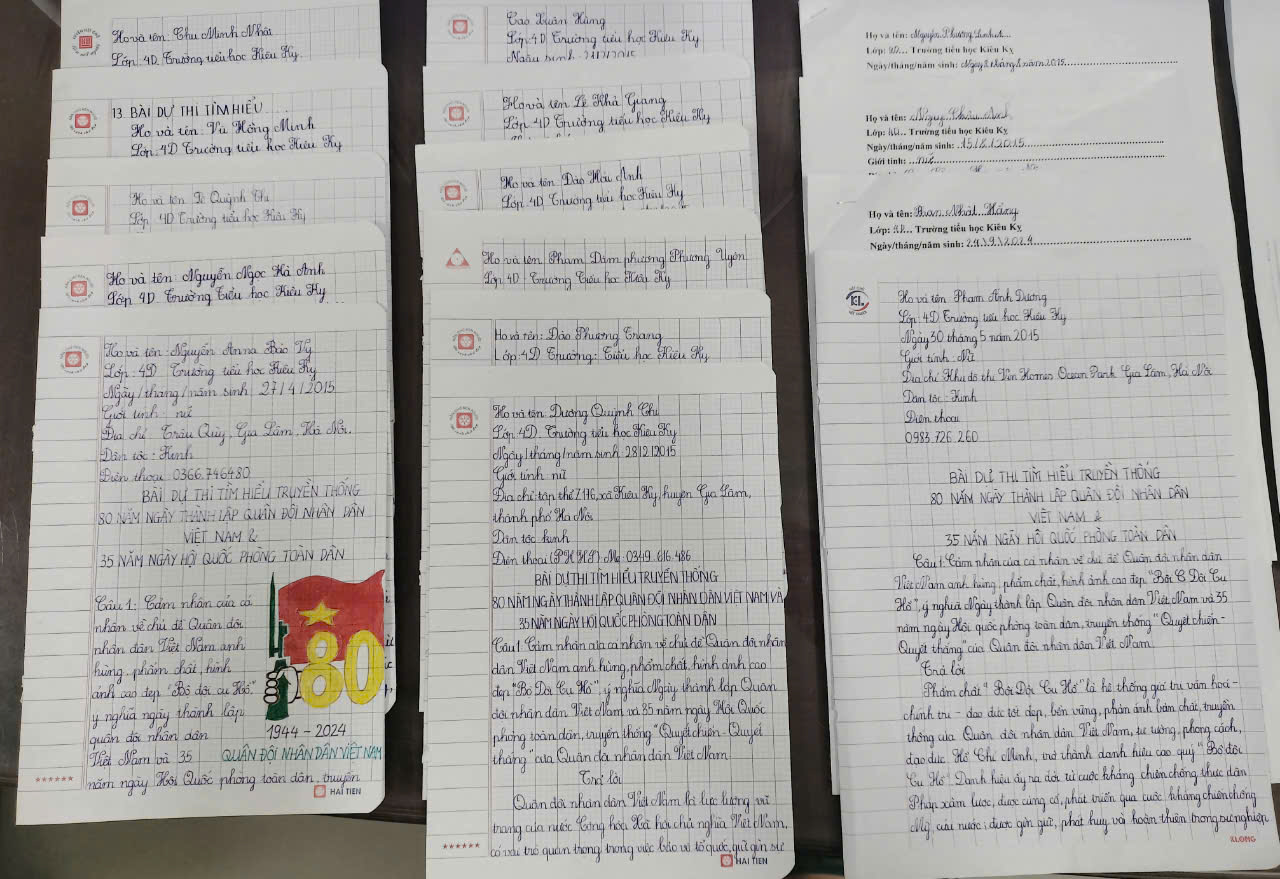 Họ và tên: Chu Minh Nhân
Lớp: 4D. Trường tiểu học Kiêu Kỵ
13. BÀI DỰ THI TÌM HIỂU
Họ và tên: Vũ Hồng Minh
Lớp: 4D Trường tiểu học Kiêu Kỵ
Họ và tên: Lê Quỳnh Chi
Lớp: 4D Trường tiểu học Kiêu Kỵ
Họ và tên: Nguyễn Ngọc Hà Anh
Lớp 4D Trường Tiểu học Kiêu Kỵ
Họ và tên: Nguyễn Anna Bảo Vy
Lớp: 4D Trường tiểu học Kiêu Kỵ
Ngày/tháng/năm sinh 27/4/2015
Giới tính nữ
Địa chỉ Trâu Qùy, Gia Lâm, Hà Nội.
Dân tộc: Kinh
Điện thoại 0366.746480
BÀI DỰ THI TÌM HIỂU TRUYỀN THỐNG
80 NĂM NGÀY THÀNH LẬP QUÂN ĐỘI NHÂN DÂN
VIỆT NAM &
35 NĂM NGÀY HỘI QUỐC PHÒNG TOÀN DÂN
Câu 1: Cảm nhận của cá
nhân về chủ đề Quân đội
nhân dân Việt Nam anh
hùng, phẩm chất, hình
ảnh cao đẹp "Bộ đội cụ Hồ".
ý nghĩa ngày thành lập
quân đội nhân dân
Việt Nam và 35
năm ngày Hội Quốc phòng toàn dân, truyền
80
1944 - 2024
QUÂN ĐỘI NHÂN DÂN VIỆT NAM
HẢI TIẾN
Cao Xuân Hùng
Lớp: 4D Trường tiểu học Kiêu Kỵ
Họ và tên Lê Khả Giang
Lớp: 4D Trường tiểu học Kiêu Kỵ
Họ và tên Đào Hữu Anh
Lớp 4D Trường tiểu học Kiêu Kỵ
Họ và tên: Phạm Đàm phương Phương Uyên
Lớp 4D Trường Tiểu học Kiêu Kỵ
Họ và tên: Đào Phương Trang
Lớp: 4D Trường: Tiểu học Kiêu Kỵ
Họ và tên: Dương Quỳnh Chi
Lớp: 4D. Trường tiểu học Kiêu Kỵ
Ngày/tháng/năm sinh 28/2/2015
Giới tính nữ
Địa chỉ: tập thể Z176, xã Kiêu Kỵ, huyện Gia Lâm,
thành phố Hà Nội
Dân tộc kinh
Điện thoại (PHHS): Mẹ: 0349.616.486
BÀI DỰ THI TÌM HIỂU TRUYỀN THỐNG
80 NĂM NGÀY THÀNH LẬP QUÂN ĐỘI NHÂN DÂN VIỆT NAM VÀ
35 NĂM NGÀY HỘI QUỐC PHÒNG TOÀN DÂN
Câu 1: Cảm nhận của cá nhân về chủ đề Quân đội nhân
dân Việt Nam anh hùng, phẩm chất, hình ảnh cao
đẹp "Bộ Đội Cụ Hồ", ý nghĩa Ngày thành lập Quân
đội nhân dân Việt Nam và 35 năm ngày Hội Quốc
phòng toàn dân, truyền thống "Quyết chiến - Quyết
thắng" của Quân đội nhân dân Việt Nam
Trả lời
Quân đội nhân dân Việt Nam là lực lượng vũ
trang của nước Cộng hòa Xã hội chủ nghĩa Việt Nam,
có vai trò quan trọng trong việc bảo vệ tổ quốc, giữ gìn sự
HẢI TIẾN
Họ và tên: Nguyễn Phương Linh
Lớp: 4D... Trường tiểu học Kiêu Kỵ
Ngày/tháng/năm sinh: Ngày 2 tháng 8 năm 2015
Họ và tên: Châu Anh
Lớp: 4D... Trường tiểu học Kiêu Kỵ
Ngày/tháng/năm sinh: 15/8/2015
Giới tính: nữ
Họ và tên: Nhật Hằng
Lớp: Trường tiểu học Kiêu Kỵ
Ngày/tháng/năm sinh: 24/9/2024
Họ và tên Phạm Ánh Dương
Lớp: 4D Trường tiểu học Kiêu Kỵ
Ngày 30 tháng 5 năm 2015
Giới tính: Nữ
Địa chỉ Khu đô thị Vin Homes Ocean Park Gia Lâm, Hà Nội
Dân tộc: Kinh
Điện thoại
0983.726.260
BÀI DỰ THI TÌM HIỂU TRUYỀN THỐNG
80 NĂM NGÀY THÀNH LẬP QUÂN ĐỘI NHÂN DÂN
VIỆT NAM &
35 NĂM NGÀY HỘI QUỐC PHÒNG TOÀN DÂN
Câu 1: Cảm nhận của cá nhân về chủ đề Quân đội nhân dân
Việt Nam anh hùng, phẩm chất, hình ảnh cao đẹp "Bộ Đội Cụ
Hồ", ý nghĩa Ngày thành lập Quân đội nhân dân Việt Nam và 35
năm ngày Hội quốc phòng toàn dân, truyền thống "Quyết chiến -
Quyết thắng của Quân đội nhân dân Việt Nam.
Trả lời
Phẩm chất "Bộ Đội Cụ Hồ" là hệ thống giá trị văn hoá -
chính trị - đạo đức tốt đẹp, bền vững, phản ánh bản chất, truyền
thống của Quân đội nhân dân Việt Nam, tư tưởng, phong cách,
đạo đức Hồ Chí Minh, trở thành danh hiệu cao quý "Bộ đội
Cụ Hồ". Danh hiệu ấy ra đời từ cuộc kháng chiến chống thực dân
Pháp xâm lược, được củng cố, phát triển qua cuộc kháng chiến chống
Mỹ, cứu nước; được gìn giữ, phát huy và hoàn thiện trong sự nghiệp
KLONG